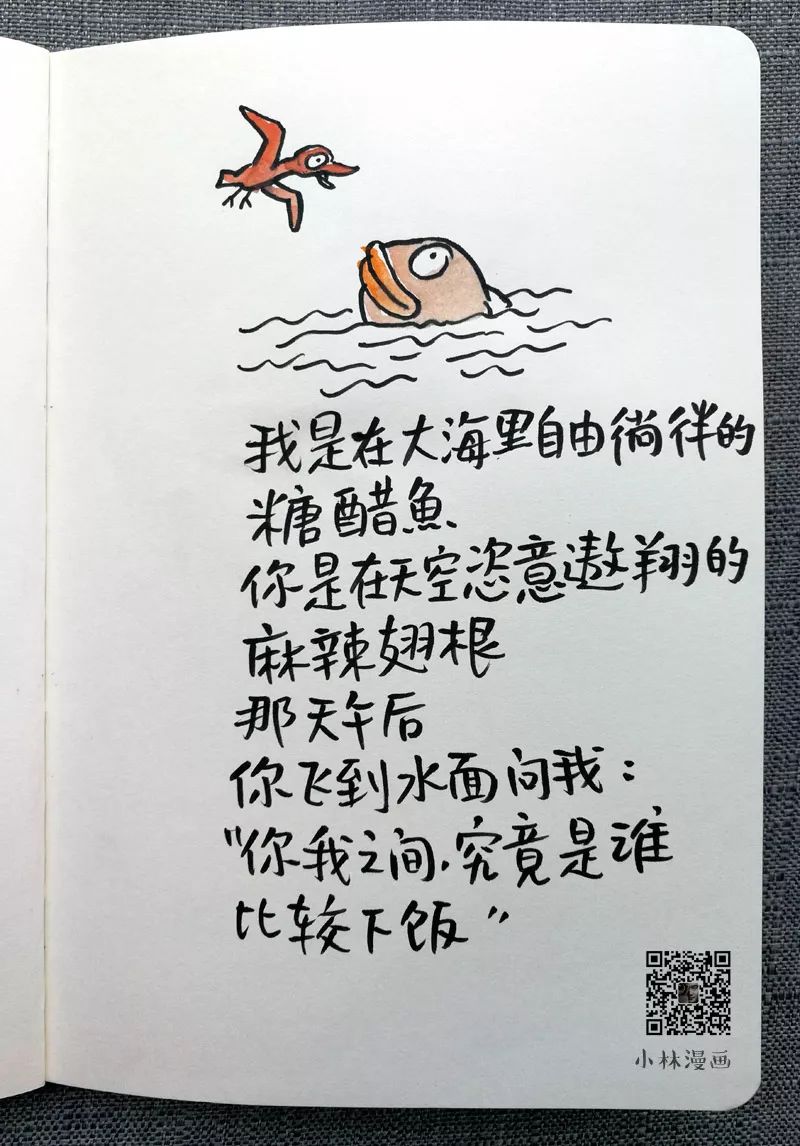 我是在大海里自由徜徉的
糖醋魚
你是在天空恣意遨翔的
麻辣翅根
那天午后
你飞到水面问我：
“你我之间，究竟是谁
比较下饭”
小林漫画